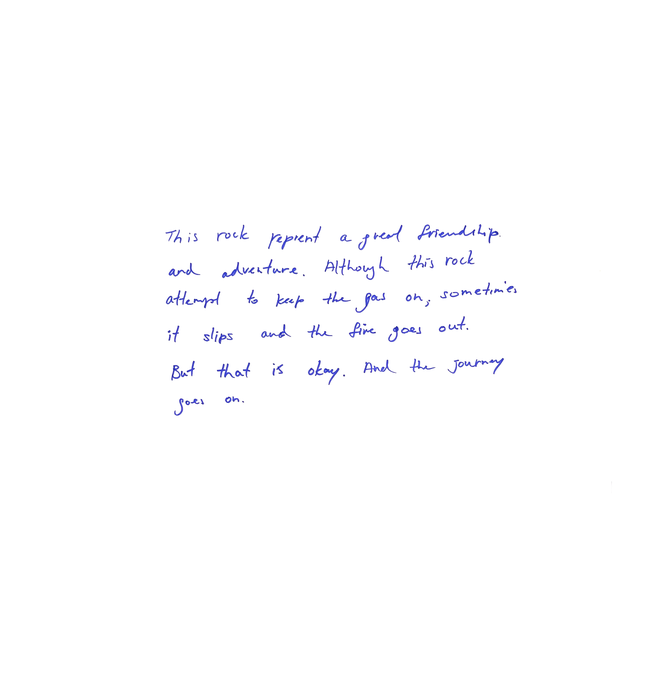 This rock reprent a great friendship
and adventure. Although this rock
attempt to keep the gas on, sometimes
it slips and the fire goes out.
But that is okay. And the journey
goes on.